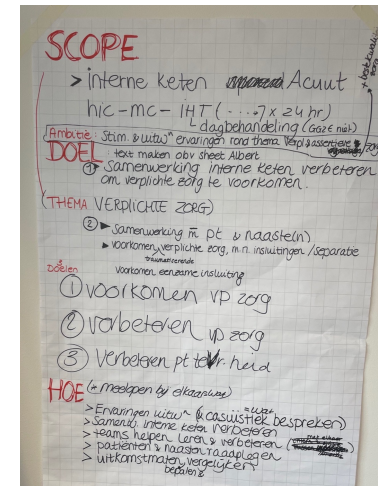 SCOPE
+ best kwali zorg
> interne keten Acuut
hic - mc - IHT (....7 x 24 hr)
dagbehandeling (GGzE niet)
Ambitie: Stim. & uitw^n ervaringen rond thema verpl. & assertieve zorg
DOEL : text maken obv sheet Albert
① Samenwerking interne keten verbeteren
om verplichte zorg te voorkomen.
(THEMA VERPLICHTE ZORG)
② ► Samenwerking m̄ pt & naaste(n)
► voorkomen verplichte zorg, m.n. insluitingen / separatie
traumatiserende
voorkomen eenzame insluiting
Doelen
① voorkomen vp zorg
② verbeteren vp zorg
③ Verbeteren pt tevr.heid
HOE (+ meelopen bij elkaar)
> Ervaringen uitw^n (& casuïstiek bespreken)
> Samenw. interne keten verbeteren
> teams helpen leren & verbeteren
> patiënten & naasten raadplegen
> uitkomstmaten vergelijken
bepalen &